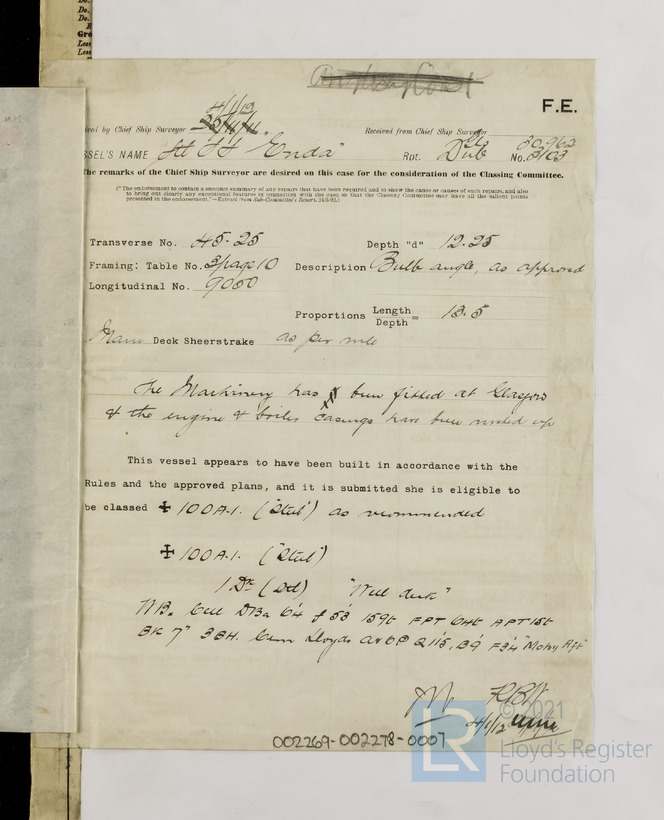 F.E.
4/1/12
ived by Chief Ship Surveyor
Received from Chief Ship Surveyor
SSEL'S NAME "Enda" Rpt. Dub No. 3103
The remarks of the Chief Ship Surveyor are desired on this case for the consideration of the Classing Committee.
("The endorsement to contain a succinct summary of any repairs that have been required and to show the cause or causes of such repairs, and also
to bring out clearly any exceptional features in connection with the case, so that the Classing Committee may have all the salient points
presented in the endorsement."—Extract from Sub-Committee's Report,
Transverse No. 45.25 Depth "d" 12.25
Framing: Table No. 3/page 10 Description Bulb angle, as approved
Longitudinal No. 9050
Proportions Length/Depth = 13.5
Main Deck Sheerstrake as per rule
The Machinery has been fitted at Glasgow
& the engine & boiler casings have been riveted up
This vessel appears to have been built in accordance with the
Rules and the approved plans, and it is submitted she is eligible to
be classed ✠ 100A.1. ("Steel") as recommended
✠ 100A.1. ("Steel")
1 Dk (Stl) "Well deck"
BK 7" 3BH. Cem Lloyds A&CP
4/1/12
002269-002278-0007
© 2021
LR
Lloyd's Register
Foundation